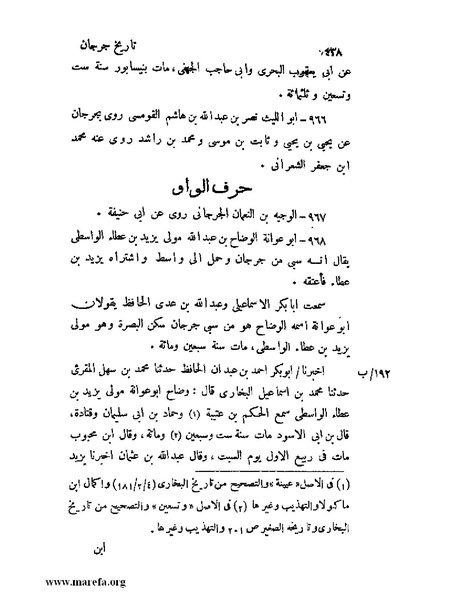 ٤٣٨ تاريخ جرجان
عن ابى يعقوب البحرى وابى حاجب الجهنى، مات بنيسابور سنة ست
وتسعين وثلثمائة .
٩٦٦ - ابو الليث نصر بن عبدالله بن هاشم القومسى روى بجرجان
عن يحيى بن يحيى وثابت بن موسى ومحمد بن راشد روى عنه محمد
ابن جعفر الشعرانى .
حرف الواو
٩٦٧ - الوجيه بن النعمان الجرجانى روى عن ابى حنيفة .
٩٦٨ - ابو عوانة الوضاح بن عبدالله مولى يزيد بن عطاء الواسطى
يقال انه سبى من جرجان وحمل الى واسط واشتراه يزيد بن
عطاء فأعتقه .
سمعت ابابكر الاسماعيلى وعبدالله بن عدى الحافظ يقولان
ابو عوانة اسمه الوضاح هو من سبى جرجان سكن البصرة وهو مولى
يزيد بن عطاء الواسطى، مات سنة سبعين ومائة .
١٩٢/ب اخبرنا / ابوبكر احمد بن عبدان الحافظ حدثنا محمد بن سهل المقرئ
حدثنا محمد بن اسماعيل البخارى قال : وضاح ابوعوانة مولى يزيد بن
عطاء الواسطى سمع الحكم بن عتيبة (١) وحماد بن ابى سليمان وقتادة،
قال بن ابى الاسود مات سنة ست وسبعين (٢) ومائة، وقال ابن محبوب
مات فى ربيع الاول يوم السبت، وقال عبدالله بن عثمان اخبرنا يزيد
(١) فى الاصل «عيينة» والتصحيح من تاريخ البخارى (١٨١/٢/٤) واكمال ابن
ماكولا والتهذيب وغيرها (٢) فى الاصل «وتسعين» والتصحيح من تاريخ
البخارى وتاريخه الصغير ص ٢٠١ والتهذيب وغيرها .
ابن
www.marefa.org